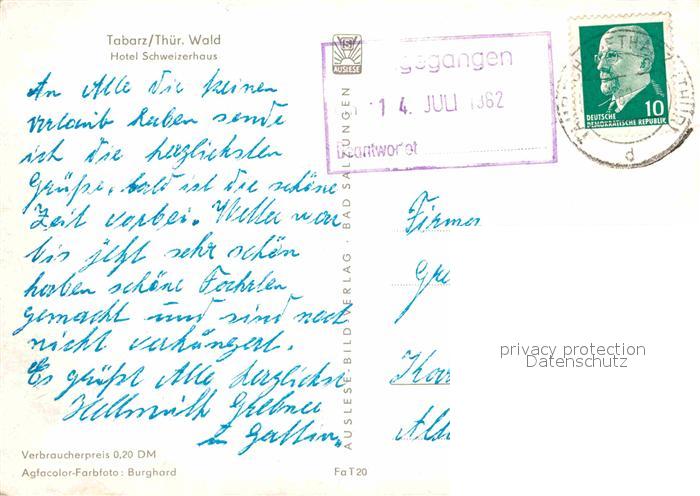 Tabarz/Thür. Wald
Hotel Schweizerhaus
An Alle die keinen
Urlaub haben sende
ich die herzlichsten
Grüße, bald ist die schöne
Zeit vorbei. Wetter war
bis jetzt sehr schön
haben schöne Fahrten
gemacht und sind noch
nicht verhungert.
Es grüßt Alle herzlichst
Hellmuth
u Gattin
Verbraucherpreis 0,20 DM
Agfacolor-Farbfoto: Burghard
Fa T 20
AUSLESE
AUSLESE-BILD-VERLAG · BAD SALZUNGEN
gegangen
14. JULI 1962
beantwortet
DEUTSCHE
DEMOKRATISCHE REPUBLIK
10
d
Firma
Gre
privacy protection
Datenschutz